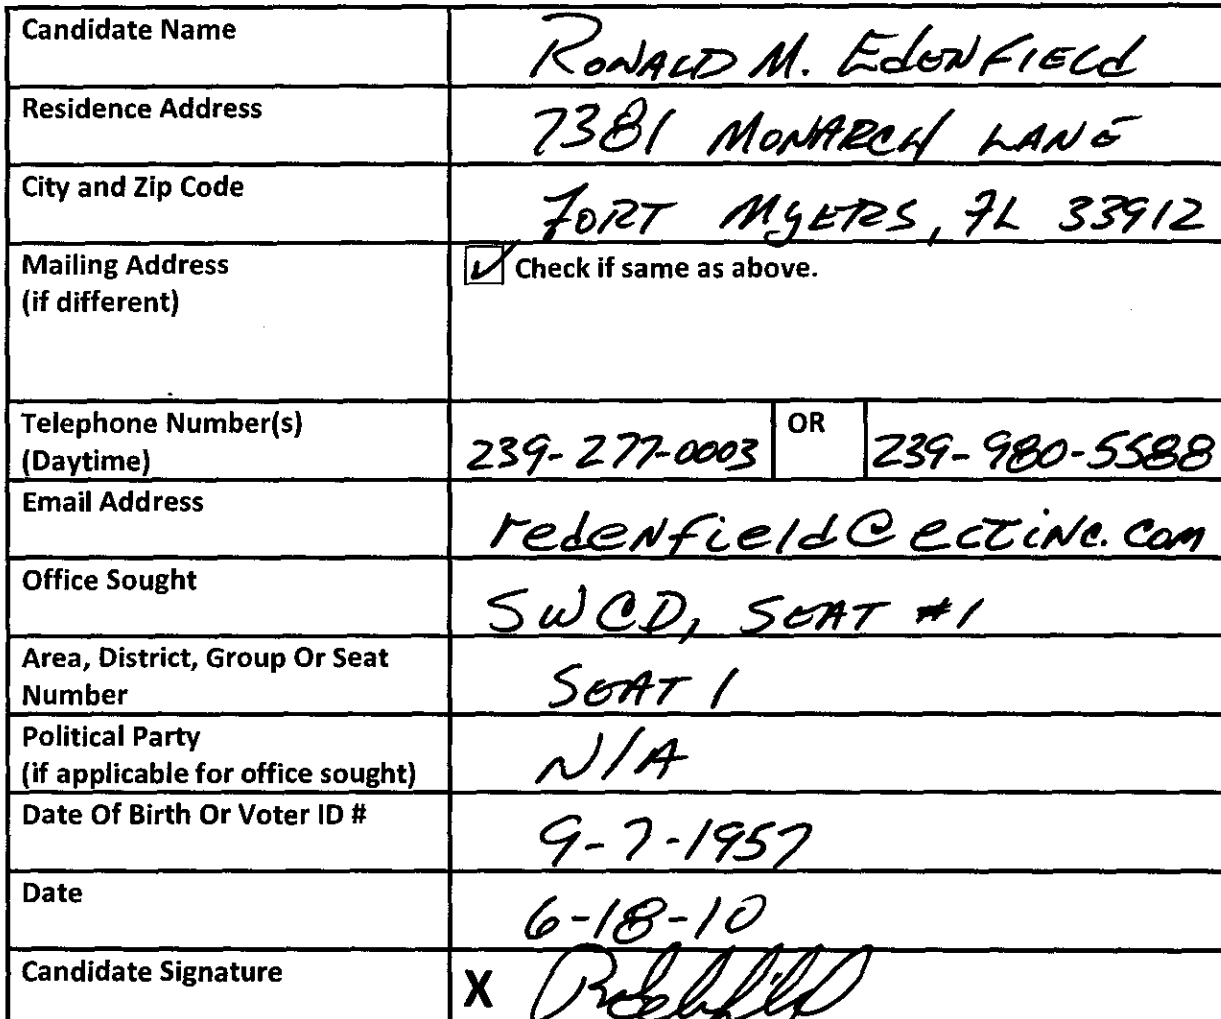 Candidate Name
RONALD M. EdENFIELd
Residence Address
7381 MONARCH LANE
City and Zip Code
FORT MyERS, FL 33912
Mailing Address
(if different)
Check if same as above.
Telephone Number(s)
(Daytime)
239-277-0003 OR 239-980-5588
Email Address
redenfield@ectinc.com
Office Sought
SWCD, SEAT #1
Area, District, Group Or Seat
Number
SEAT 1
Political Party
(if applicable for office sought)
N/A
Date Of Birth Or Voter ID #
9-7-1957
Date
6-18-10
Candidate Signature
X